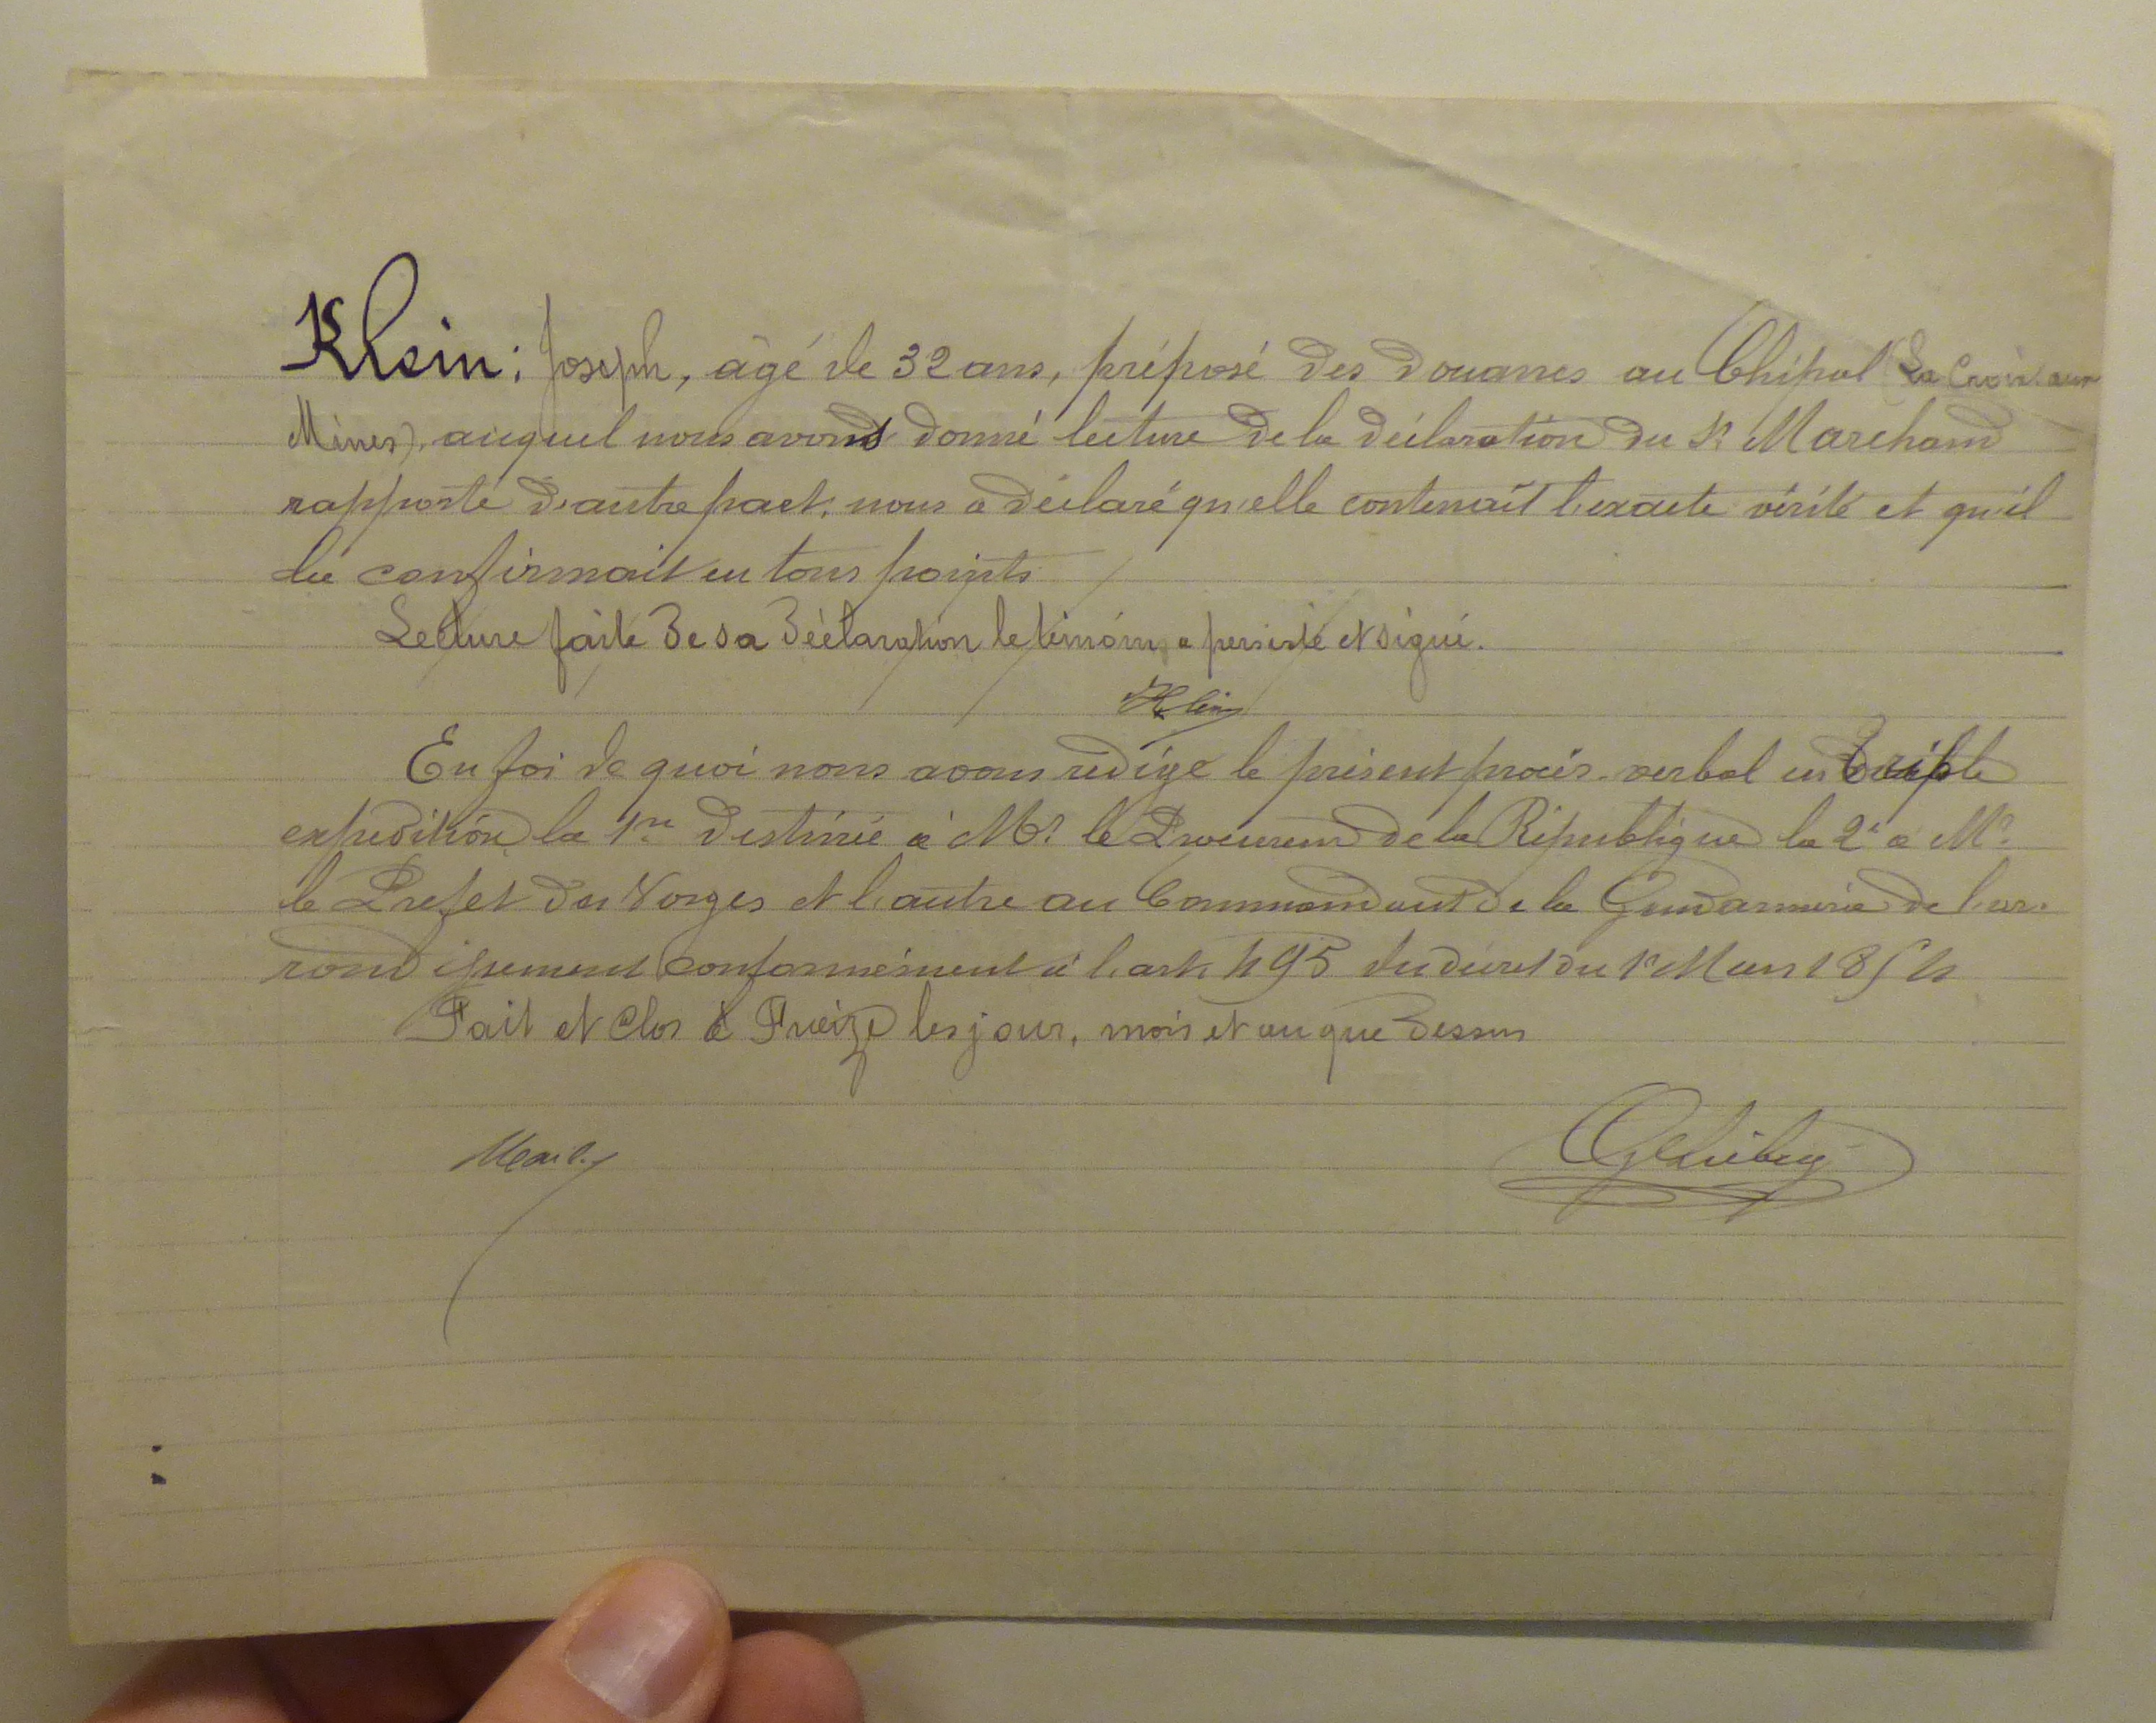 Klein : Joseph, âgé de 32 ans, préposé des Douanes au Chipal (La Croix aux
Mines), auquel nous avons donné lecture de la déclaration du Sr Marchand
rapporté d'autre part, nous a déclaré qu'elle contenait l'exacte vérité et qu'il
la confirmait en tous points
Lecture faite de sa déclaration le témoin, a persisté et signé.
Klein
En foi de quoi nous avons rédigé le présent procès-verbal en triple
expédition la 1re destinée à Mr. le Procureur de la République la 2e à Mr.
le Préfet des Vosges et l'autre au Commandant de la Gendarmerie de l'ar-
rondissement conformément à l'art. 495 du décret du 1er Mars 1854
Fait et Clos à Fraize les jour, mois et an que dessus